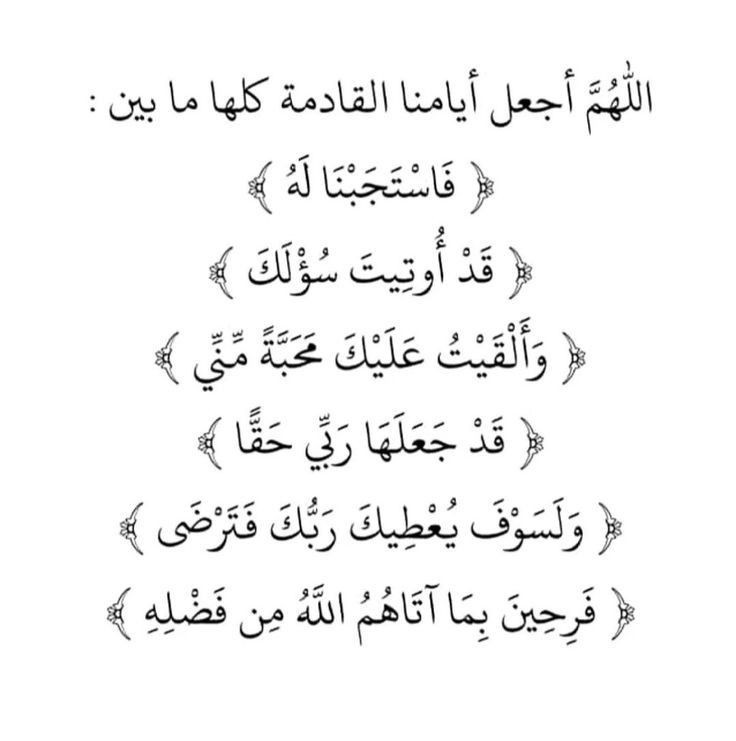 اللّٰهُمَّ أجعل أيامنا القادمة كلها ما بين :
﴿ فَاسْتَجَبْنَا لَهُ ﴾
﴿ قَدْ أُوتِيتَ سُؤْلَكَ ﴾
﴿ وَأَلْقَيْتُ عَلَيْكَ مَحَبَّةً مِّنِّي ﴾
﴿ قَدْ جَعَلَهَا رَبِّي حَقًّا ﴾
﴿ وَلَسَوْفَ يُعْطِيكَ رَبُّكَ فَتَرْضَى ﴾
﴿ فَرِحِينَ بِمَا آتَاهُمُ اللَّهُ مِن فَضْلِهِ ﴾